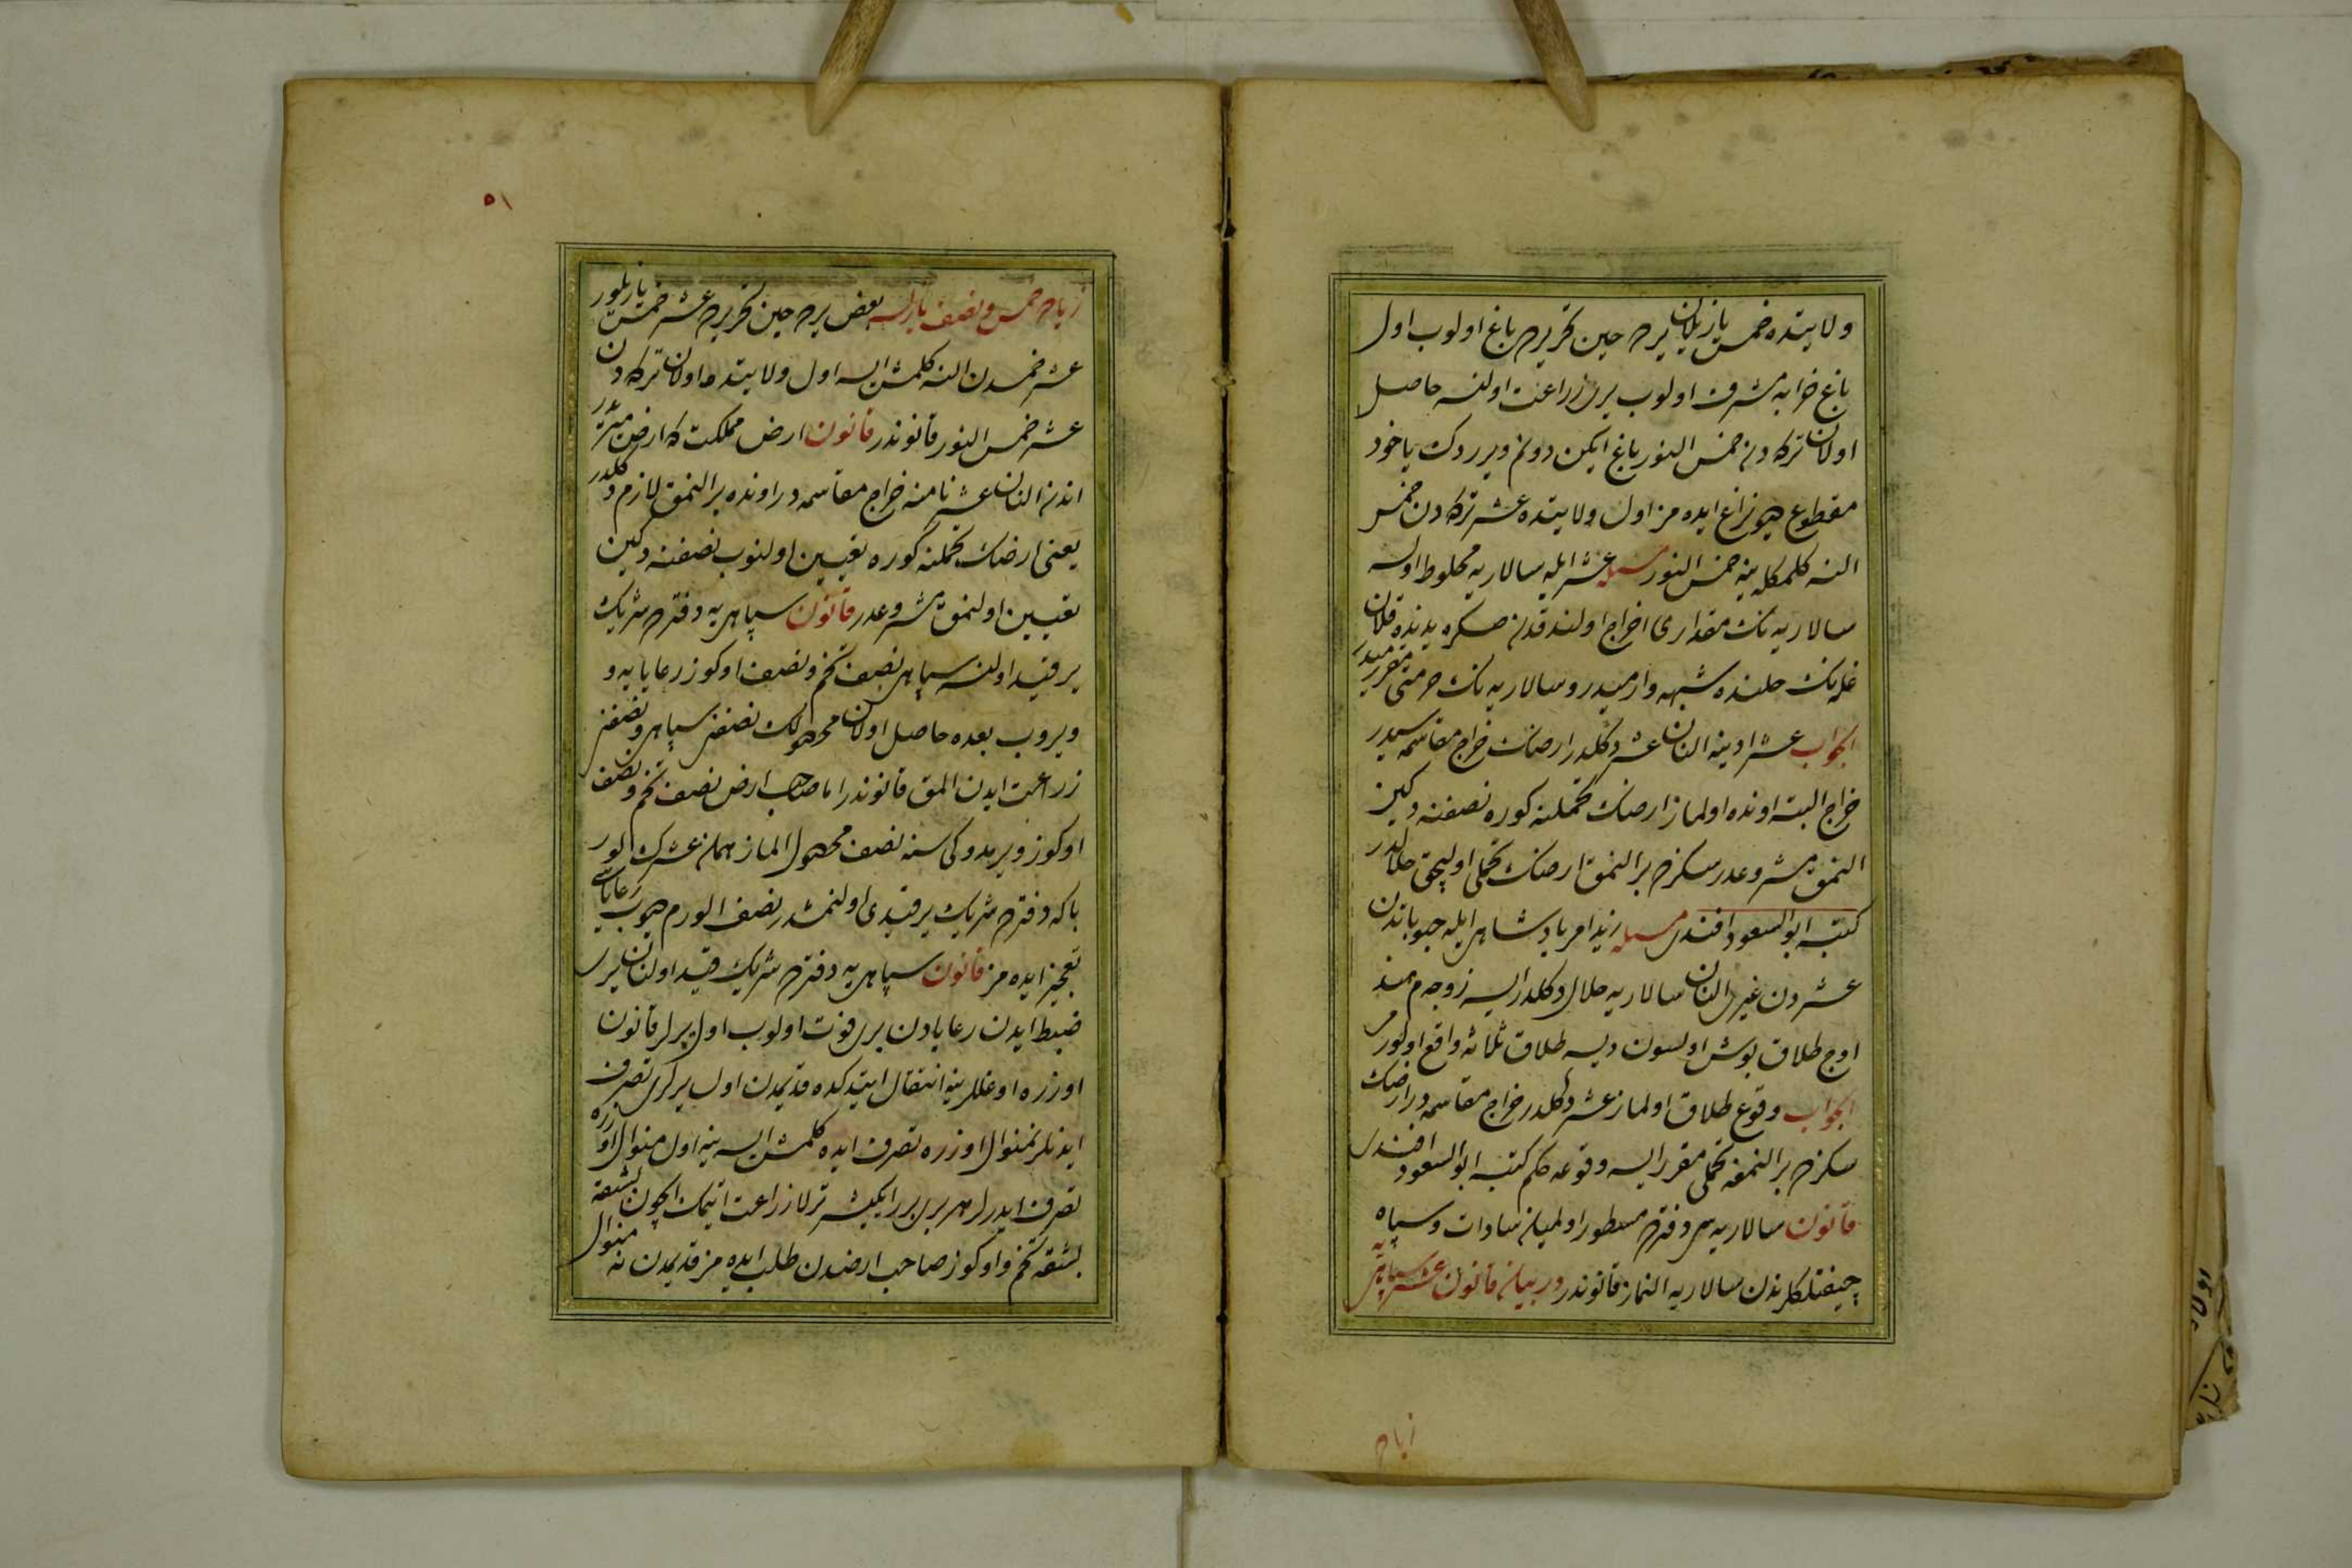 ولایتده خمس یازیلان یرده حین تحریرده باغ اولوب اول
باغ خرابه مشرف اولوب یری زراعت اولنسه حاصل
اولان ترکه دن خمس النور باغ ایکن دونم ویرردك یاخود
مقطوع دیو نزاع ایده مز اول ولایتده عشر ترکه دن خمس
النه کلمکله ینه خمس النور مسئله عشر ایله سالاریه مخلوط اولسه
سالاریه نك مقداری اخراج اولندقدن صکره یدنده قلان
غله نك حلنده شبهه وارمیدر و سالاریه نك حرمتی مقررمیدر
الجواب عشر ادینه النان عشر دکلدر ارضك خراج مقاسمه سیدر
خراج البته اونده اولماز ارضك تحملنه کوره نصفنه دکین
النمق مشروعدر سکزده بر النمق ارضك تحملی اولیجق حلالدر
کتبه ابو السعود افندی مسئله زید امر پادشاهی ایله حبوباتدن
عشردن غیری النان سالاریه حلال دکلدر ایسه زوجه م هند
اوچ طلاق بوش اولسون دیسه طلاق ثلاثه واقع اولورمی
الجواب وقوع طلاق اولماز عشر دکلدر خراج مقاسمه در ارضك
سکزده بر النمغه تحملی مقرر ایسه وقوعه حکم کتبه ابو السعود افندی
قانون سالاریه سی دفترده مسطور اولمیان سادات و سپاه
چیفتلکلرندن سالاریه النماز قانوندر در بیان قانون عشر سپاهی یه
زیاده
٥١
زیاده خمس و نصف یازلسه بعض یرده حین تحریرده عشر خمس یازیلور
عشر خمسدن النه کلمش ایسه اول ولایتده اولان ترکه دن
عشر خمس النور قانوندر قانون ارض مملکت که ارض میریدر
اندن النان عشر نامنه خراج مقاسمه در اونده بر النمق لازم دکلدر
یعنی ارضك تحملنه کوره تعیین اولنوب نصفنه دکین
تعیین اولنمق مشروعدر قانون سپاهی یه دفترده شریك
یر قید اولنسه سپاهی نصف تخم و نصف اوکوز رعایایه و
ویروب بعده حاصل اولان محصولك نصفنی سپاهی و نصفنی
زراعت ایدن المق قانوندر اما صاحب ارض نصف تخم و نصف
اوکوز ویرمدوکی سنه نصف محصول الماز همان عشرك الور
باکه دفترده شریك یر قیدی اولنمشدر نصف الورم دیو رعایاسی
تعجیز ایده مز قانون سپاهی یه دفترده شریك قید اولنان یری
ضبط ایدن رعایادن بری فوت اولوب اول یرلر قانون
اوزره اوغللرینه انتقال ایتدکده قدیمدن اول یرلری تصرف
ایدنلر نه منوال اوزره تصرف ایده کلمش ایسه ینه اول منوال اوزره
تصرف ایدرلر هر بری برر ایکیشر ترلا زراعت ایتمك ایچون بشقه
بشقه تخم و اوکوز صاحب ارضدن طلب ایده مز قدیمدن نه منوال